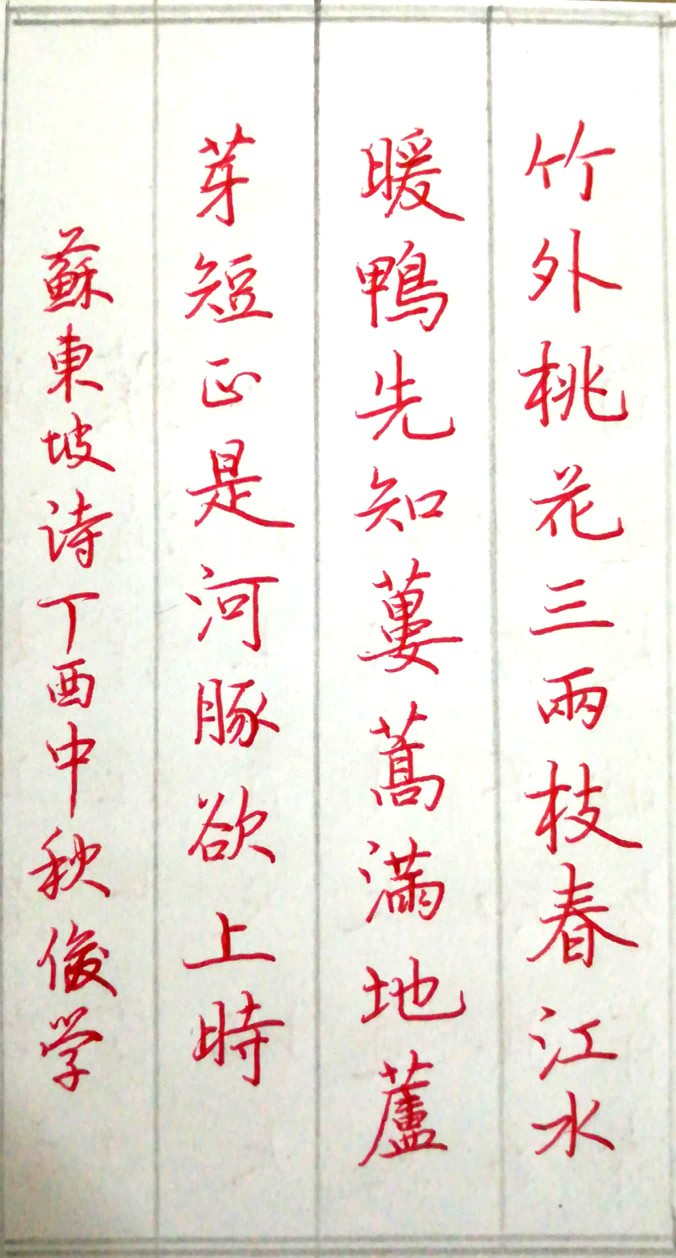 竹外桃花三兩枝春江水
暖鴨先知蔞蒿滿地蘆
芽短正是河豚欲上時
蘇東坡诗丁酉中秋俊学